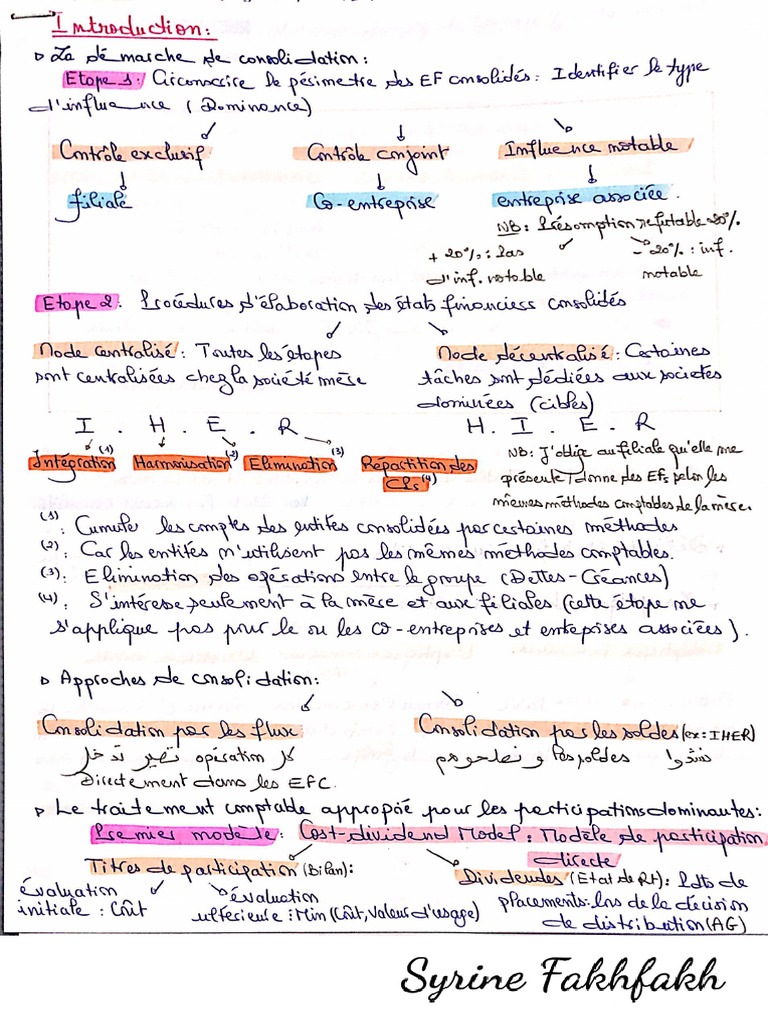 Introduction:
▷ La démarche de consolidation:
Etape 1: Circonscrire le périmètre des EF consolidés: Identifier le type
d'influence (Dominance)
Contrôle exclusif Contrôle conjoint Influence notable
filiale Co-entreprise entreprise associée.
NB: Présomption refutable 20%
+ 20%: Pas - 20%: inf.
d'inf. notable notable
Etape 2: Procédures d'élaboration des états financiers consolidés
Mode centralisé: Toutes les étapes Mode décentralisé: Certaines
sont centralisées chez la société mère tâches sont dédiées aux societés
dominées (cibles)
I . H . E . R H. I . E . R
Intégration (1) Harmonisation (2) Elimination (3) Répartition des NB: J'oblige au filiale qu'elle me
CPs (4) présente/donne des EFs selon les
mêmes méthodes comptables de la mère.
(1): Cumuler les comptes des entités consolidées par certaines méthodes
(2): Car les entités n'utilisent pas les mêmes méthodes comptables.
(3): Elimination des opérations entre le groupe (Dettes-Créances)
(4): S'intéresse seulement à la mère et aux filiales (cette étape ne
s'applique pas pour le ou les co-entreprises et entreprises associées).
▷ Approches de consolidation:
Consolidation par les flux Consolidation par les soldes (ex: IHER)
كل opération تصير تدخل les soldes و نصلحوهم
Directement dans les EFC.
▷ Le traitement comptable approprié pour les participations dominantes:
Premier modèle: Cost-dividend Model: Modèle de participation
directe
Titres de participation (Bilan): Dividendes (Etat de Rt): Pdts de
évaluation évaluation placements: lors de la décision
initiale: Coût ultérieure: Min (Coût, Valeur d'usage) de distribution (AG)
Syrine Fakhfakh